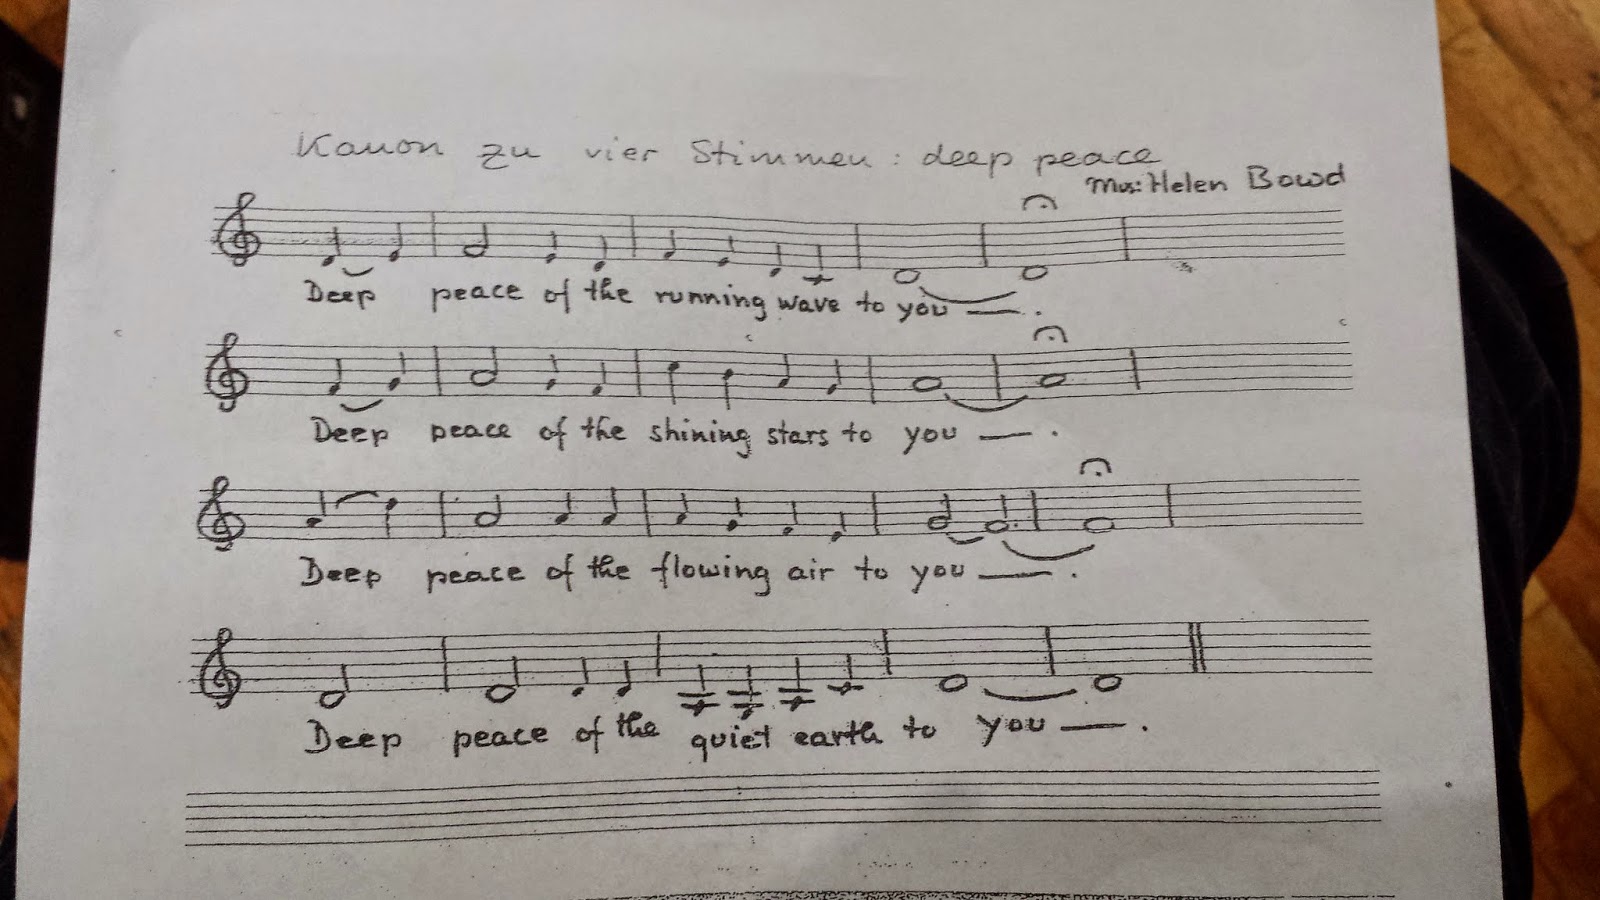 Kanon zu vier Stimmen: deep peace
Mus: Helen Bowd
Deep peace of the running wave to you —.
Deep peace of the shining stars to you —.
Deep peace of the flowing air to you —.
Deep peace of the quiet earth to you —.